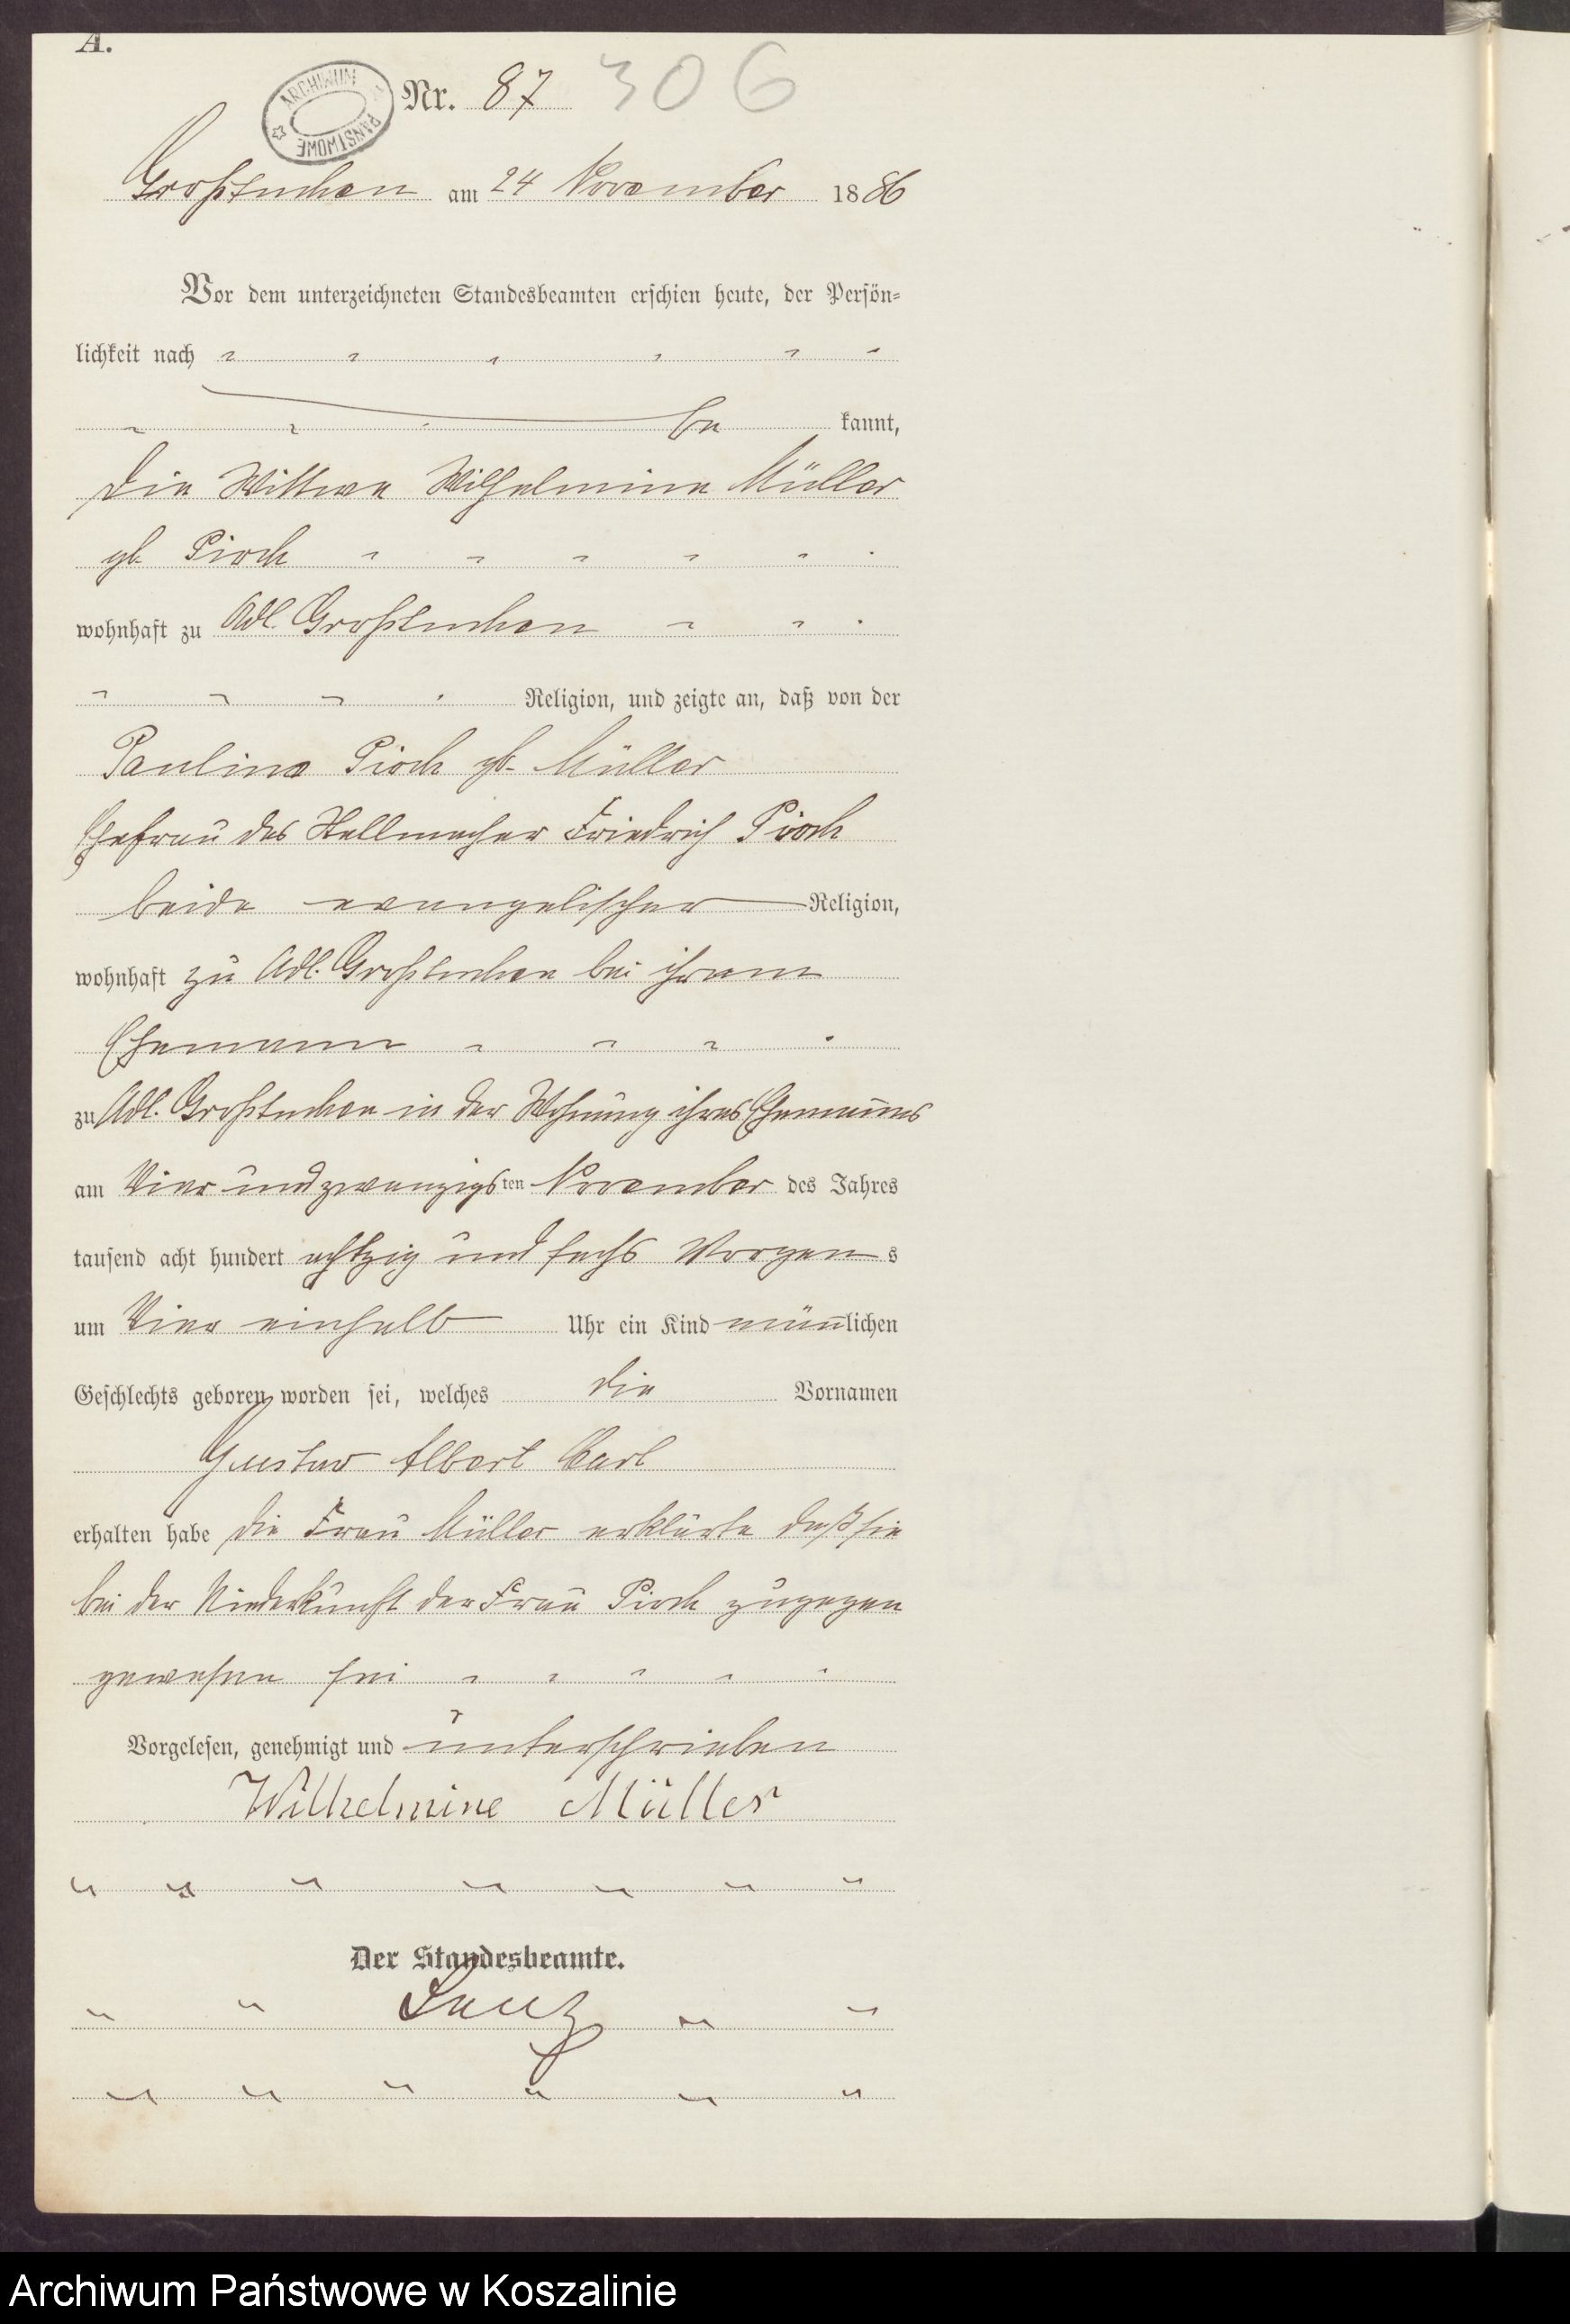 A.
ARCHIWUM PAŃSTWOWE
Nr. 87 306
Großtuchen am 24 November 1886
Vor dem unterzeichneten Standesbeamten erschien heute, der Persön=
lichkeit nach
be kannt,
die Wittwe Wilhelmine Müller
gb. Pioch
wohnhaft zu Adl. Großtuchen
Religion, und zeigte an, daß von der
Pauline Pioch gb. Müller
Ehefrau des Stellmacher Friedrich Pioch
beide evangelischer Religion,
wohnhaft zu Adl. Großtuchen bei ihrem
Ehemann
zu Adl. Großtuchen in der Wohnung ihres Ehemannes
am Vier und zwanzigsten November des Jahres
tausend acht hundert achtzig und sechs Morgens
um Vier einhalb Uhr ein Kind männlichen
Geschlechts geboren worden sei, welches die Vornamen
Gustav Albert Carl
erhalten habe die Frau Müller erklärte daß sie
bei der Niederkunft der Frau Pioch zugegen
gewesen sei
Vorgelesen, genehmigt und unterschrieben
Wilhelmine Müller
Der Standesbeamte.
Archiwum Państwowe w Koszalinie